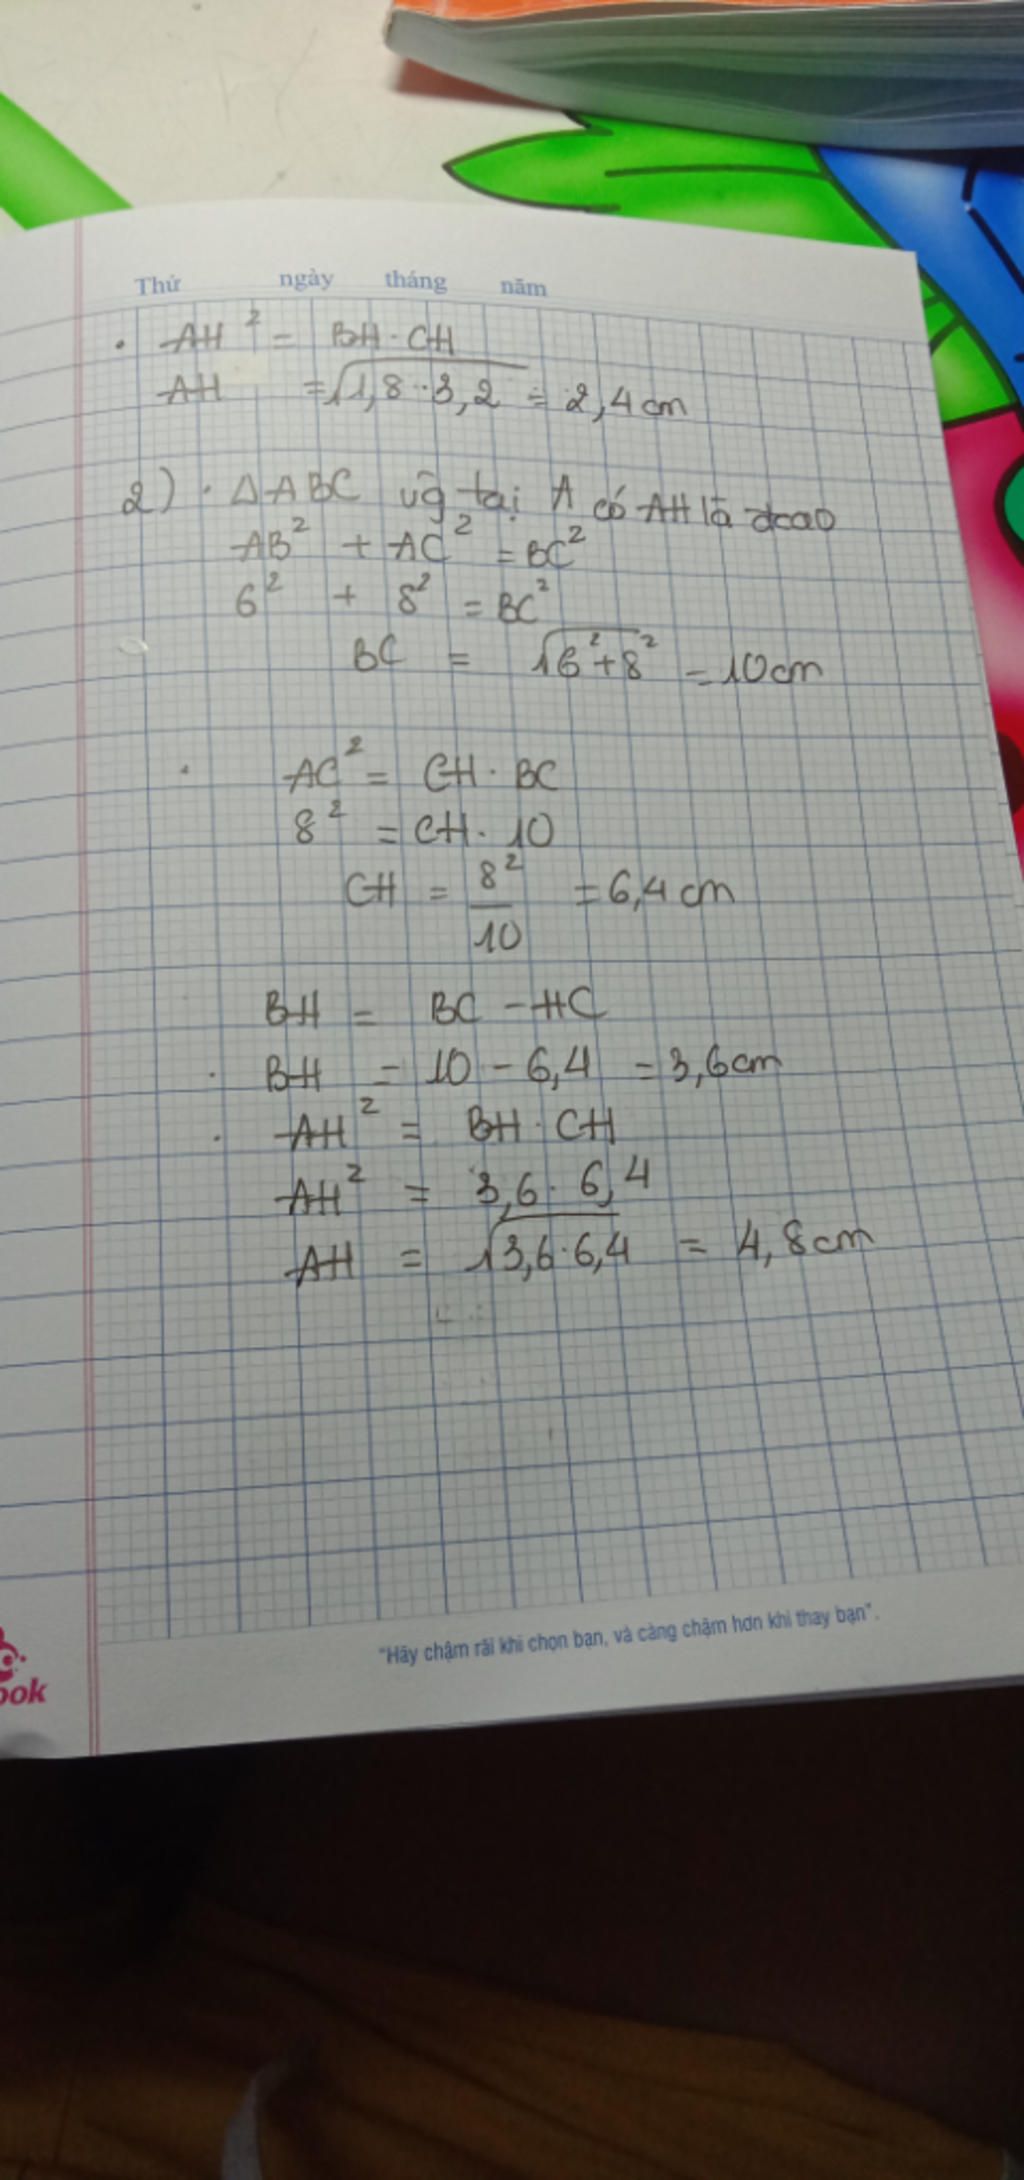 Thứ ngày tháng năm
. AH² = BH . CH
AH = √1,8 . 3,2 = 2,4 cm
2) . ΔABC vg tại A có AH là đcao
AB² + AC² = BC²
6² + 8² = BC²
BC = √6² + 8² = 10 cm
. AC² = CH . BC
8² = CH . 10
CH = 8²/10 = 6,4 cm
BH = BC - HC
. BH = 10 - 6,4 = 3,6 cm
. AH² = BH . CH
AH² = 3,6 . 6,4
AH = √3,6 . 6,4 = 4,8 cm
"Hãy chậm rãi khi chọn bạn, và càng chậm hơn khi thay bạn".
ook